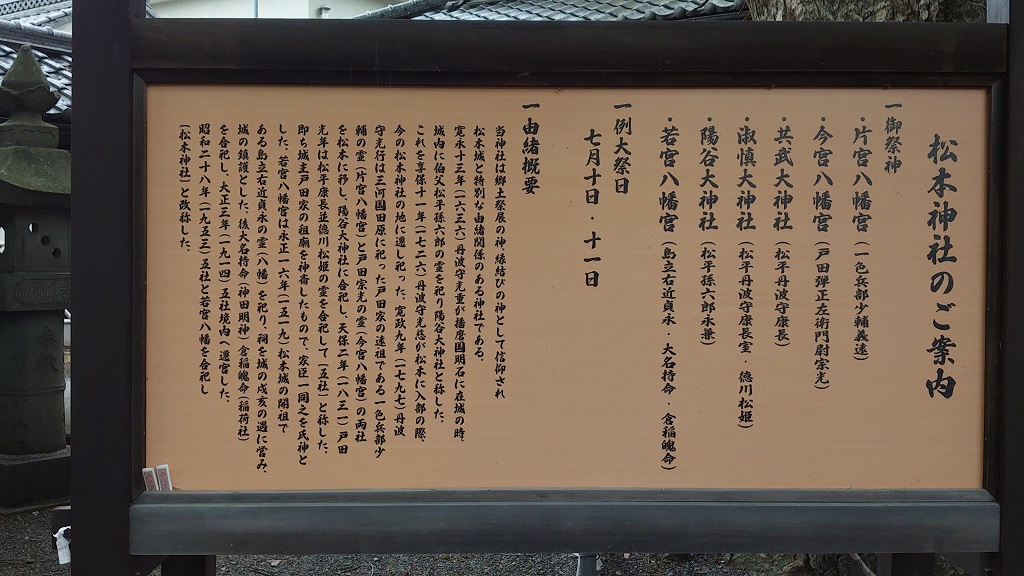 松本神社のご案内
一 御祭神
・片宮八幡宮(一色兵部少輔義遠)
・今宮八幡宮(戸田弾正左衛門尉宗光)
・共武大神社(松平丹波守康長)
・淑慎大神社(松平丹波守康長室・徳川松姫)
・陽谷大神社(松平孫六郎永兼)
・若宮八幡宮(島立右近貞永・大名持命・倉稲魄命)
一 例大祭日
七月十日・十一日
一 由緒概要
当神社は郷土発展の神、縁結びの神として信仰され
松本城と特別な由緒関係のある神社である。
寛永十三年(一六三六)丹波守光重が播磨国明石に在城の時、
城内に伯父松平孫六郎の霊を祀り陽谷大神社と称した。
これを享保十一年(一七二六)丹波守光慈が松本に入部の際、
今の松本神社の地に遷し祀った。寛政九年(一七九七)丹波
守光行は三河国田原に祀った戸田家の遠祖である一色兵部少
輔の霊(片宮八幡宮)と戸田宗光の霊(今宮八幡宮)の両社
を松本に移し、陽谷大神社に合祀し、天保二年(一八三一)戸田
光年は松平康長並徳川松姫の霊を合祀して(五社)と称した。
即ち城主戸田家の祖廟を神斎したもので、家臣一同之を氏神と
した。若宮八幡宮は永正一六年(一五一九)松本城の開祖で
ある島立右近貞永の霊(八幡)を祀り、祠を城の戌亥の遇に営み、
城の鎮護とした。後大名持命(神田明神)倉稲魄命(稲荷社)
を合祀し、大正三年(一九一四)五社境内へ遷宮した。
昭和二十八年(一九五三)五社と若宮八幡を合祀し
(松本神社)と改称した。